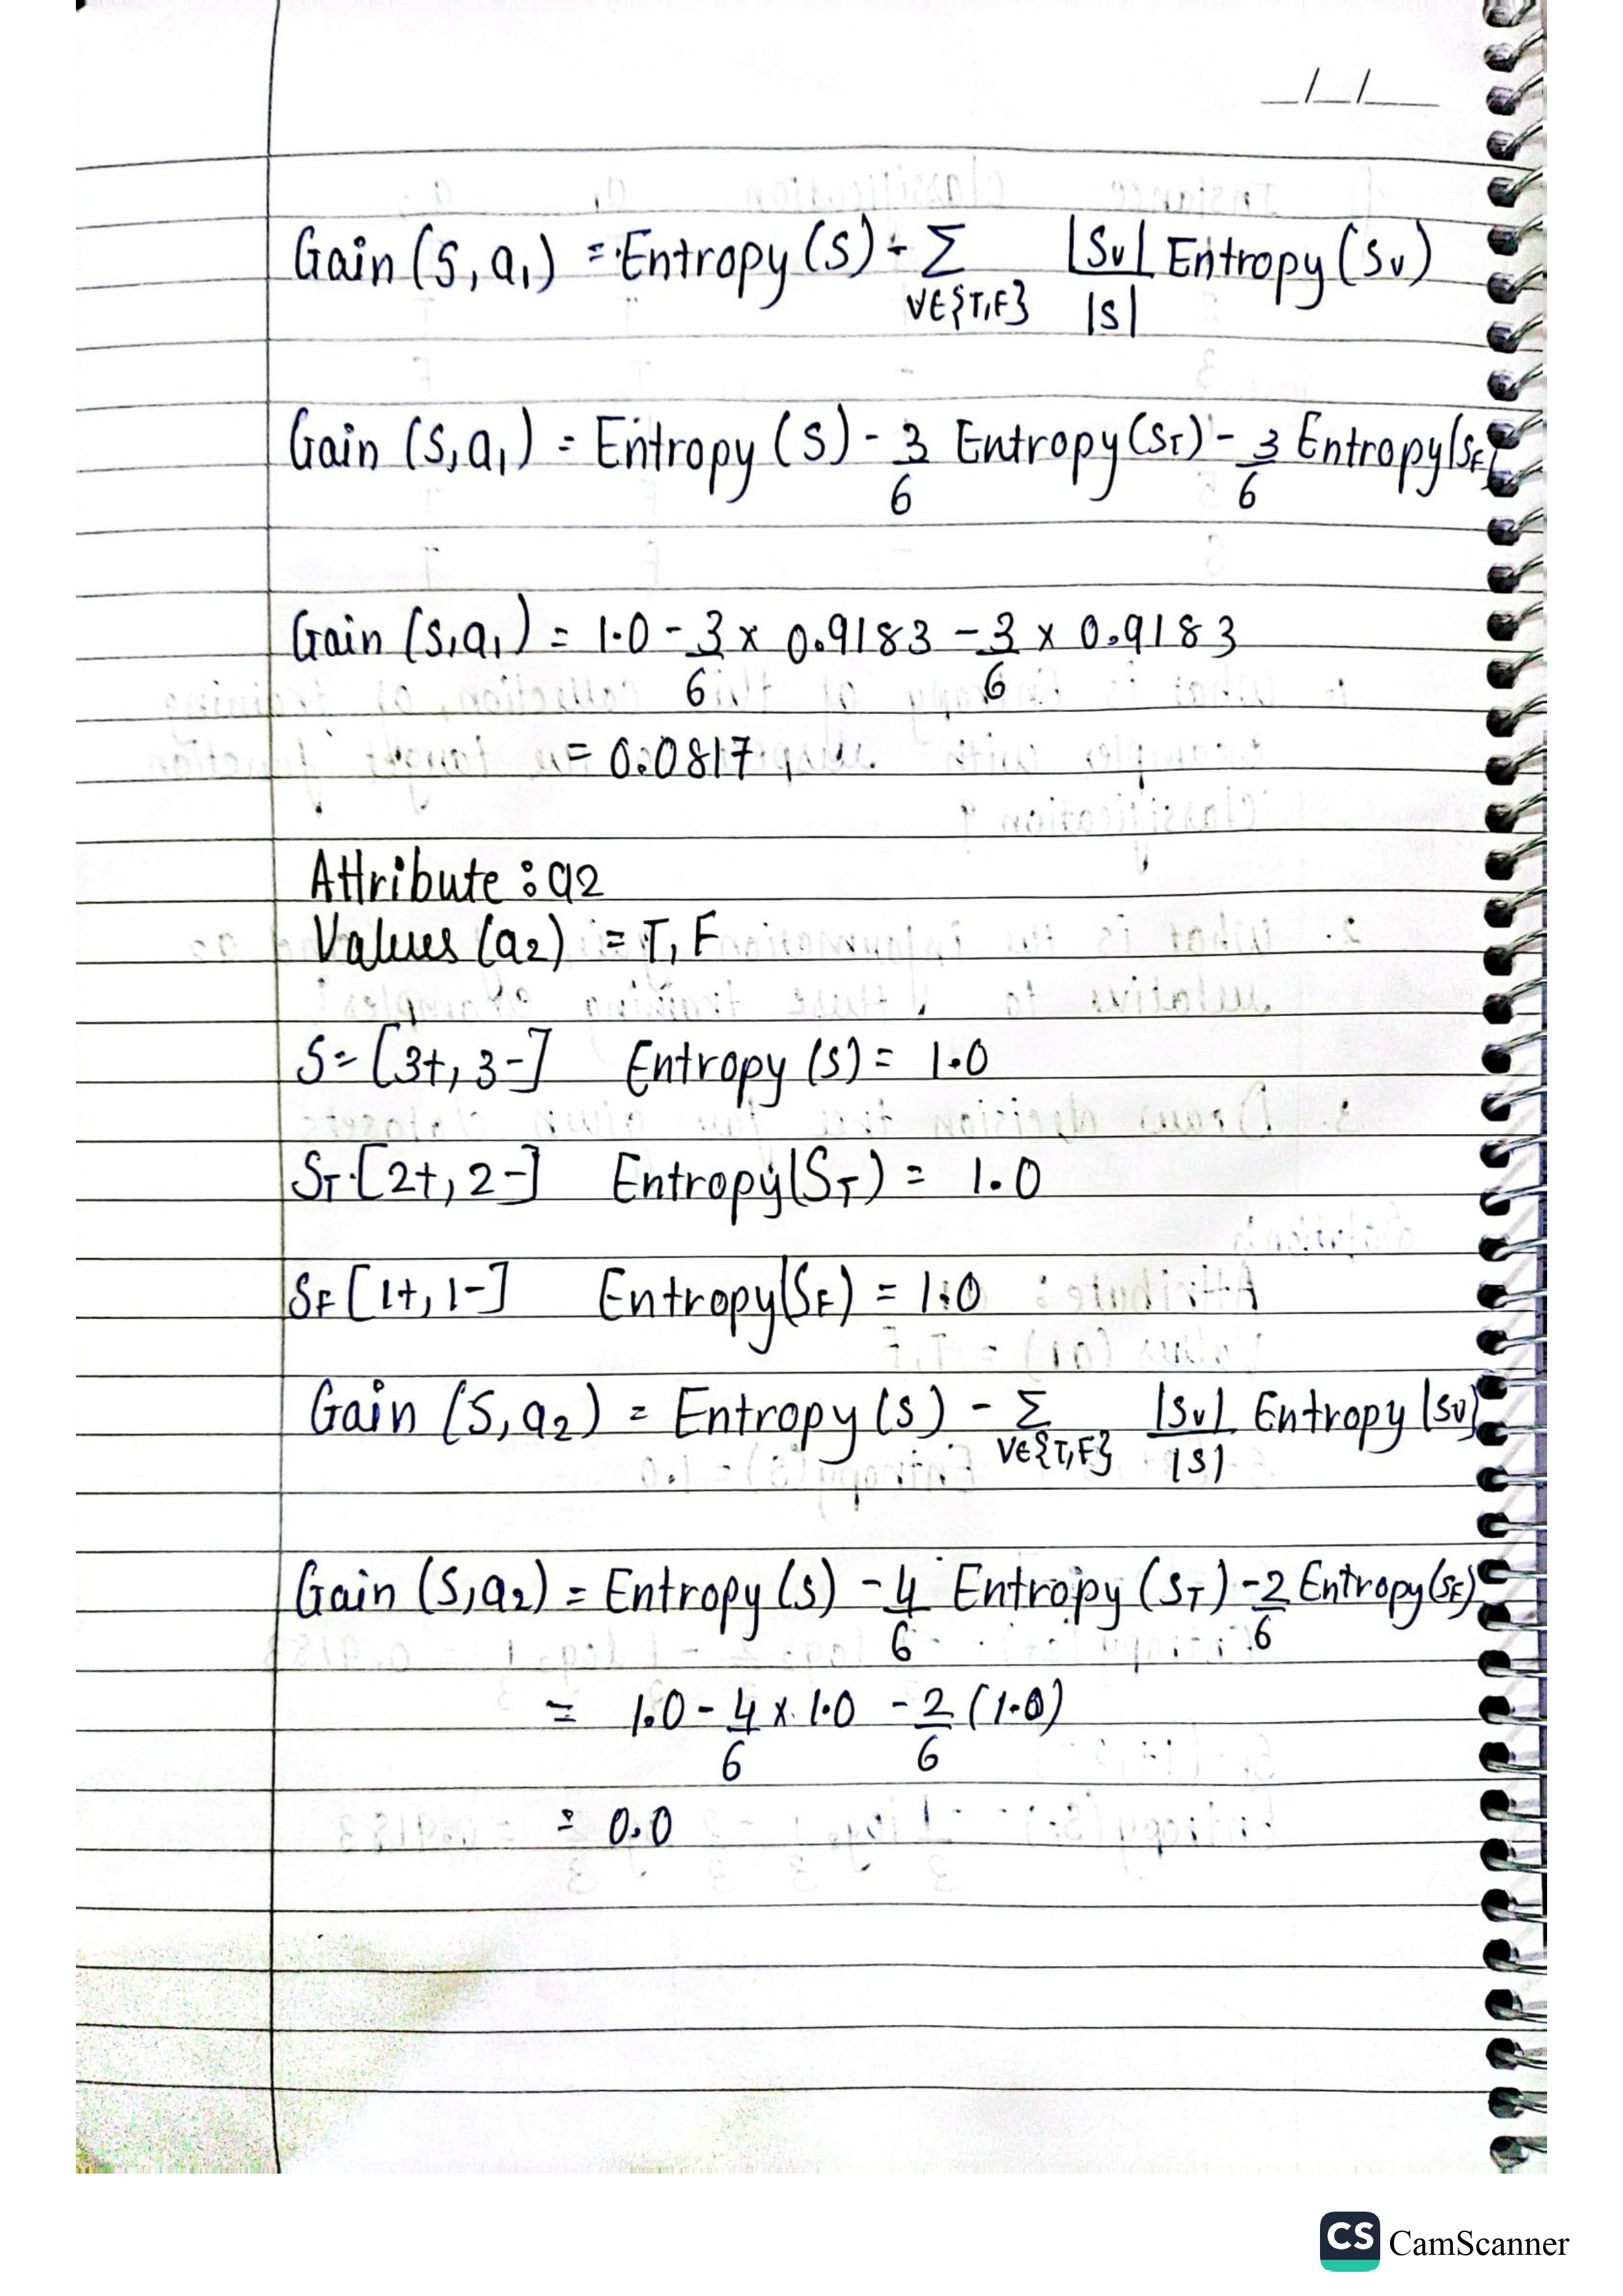 __/__/____
Gain (S, a₁) = Entropy (S) - Σ |Sv| Entropy (Sv)
v∈{T,F} |S|
Gain (S, a₁) = Entropy (S) - 3 Entropy (ST) - 3 Entropy (SF)
6 6
Gain (S, a₁) = 1.0 - 3 x 0.9183 - 3 x 0.9183
6 6
= 0.0817
Attribute : a2
Values (a2) = T, F
S = [3+, 3-] Entropy (S) = 1.0
ST [2+, 2-] Entropy (ST) = 1.0
SF [1+, 1-] Entropy (SF) = 1.0
Gain (S, a2) = Entropy (S) - Σ |Sv| Entropy (Sv)
v∈{T,F} |S|
Gain (S, a2) = Entropy (S) - 4 Entropy (ST) - 2 Entropy (SF)
6 6
= 1.0 - 4 x 1.0 - 2 (1.0)
6 6
= 0.0
CS CamScanner